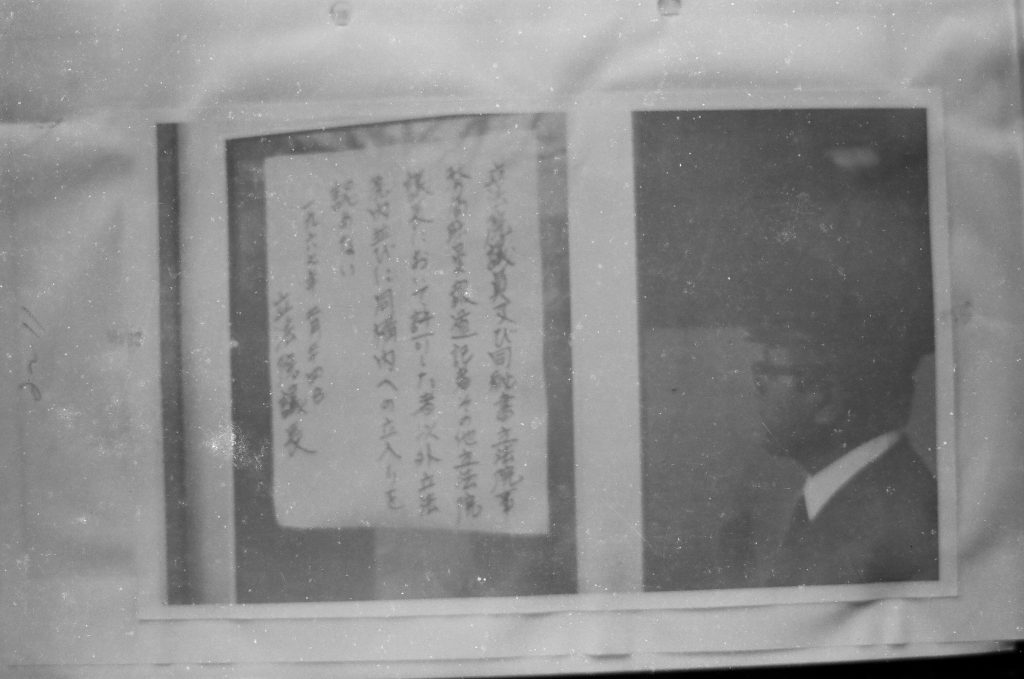 立法院議員及び同秘書立法院事
務局職員報道記者その他立法院
議長において許可した者以外立法
院内並びに同構内への立入りを
認めない
一九六七年 月廿四日
立法院議長